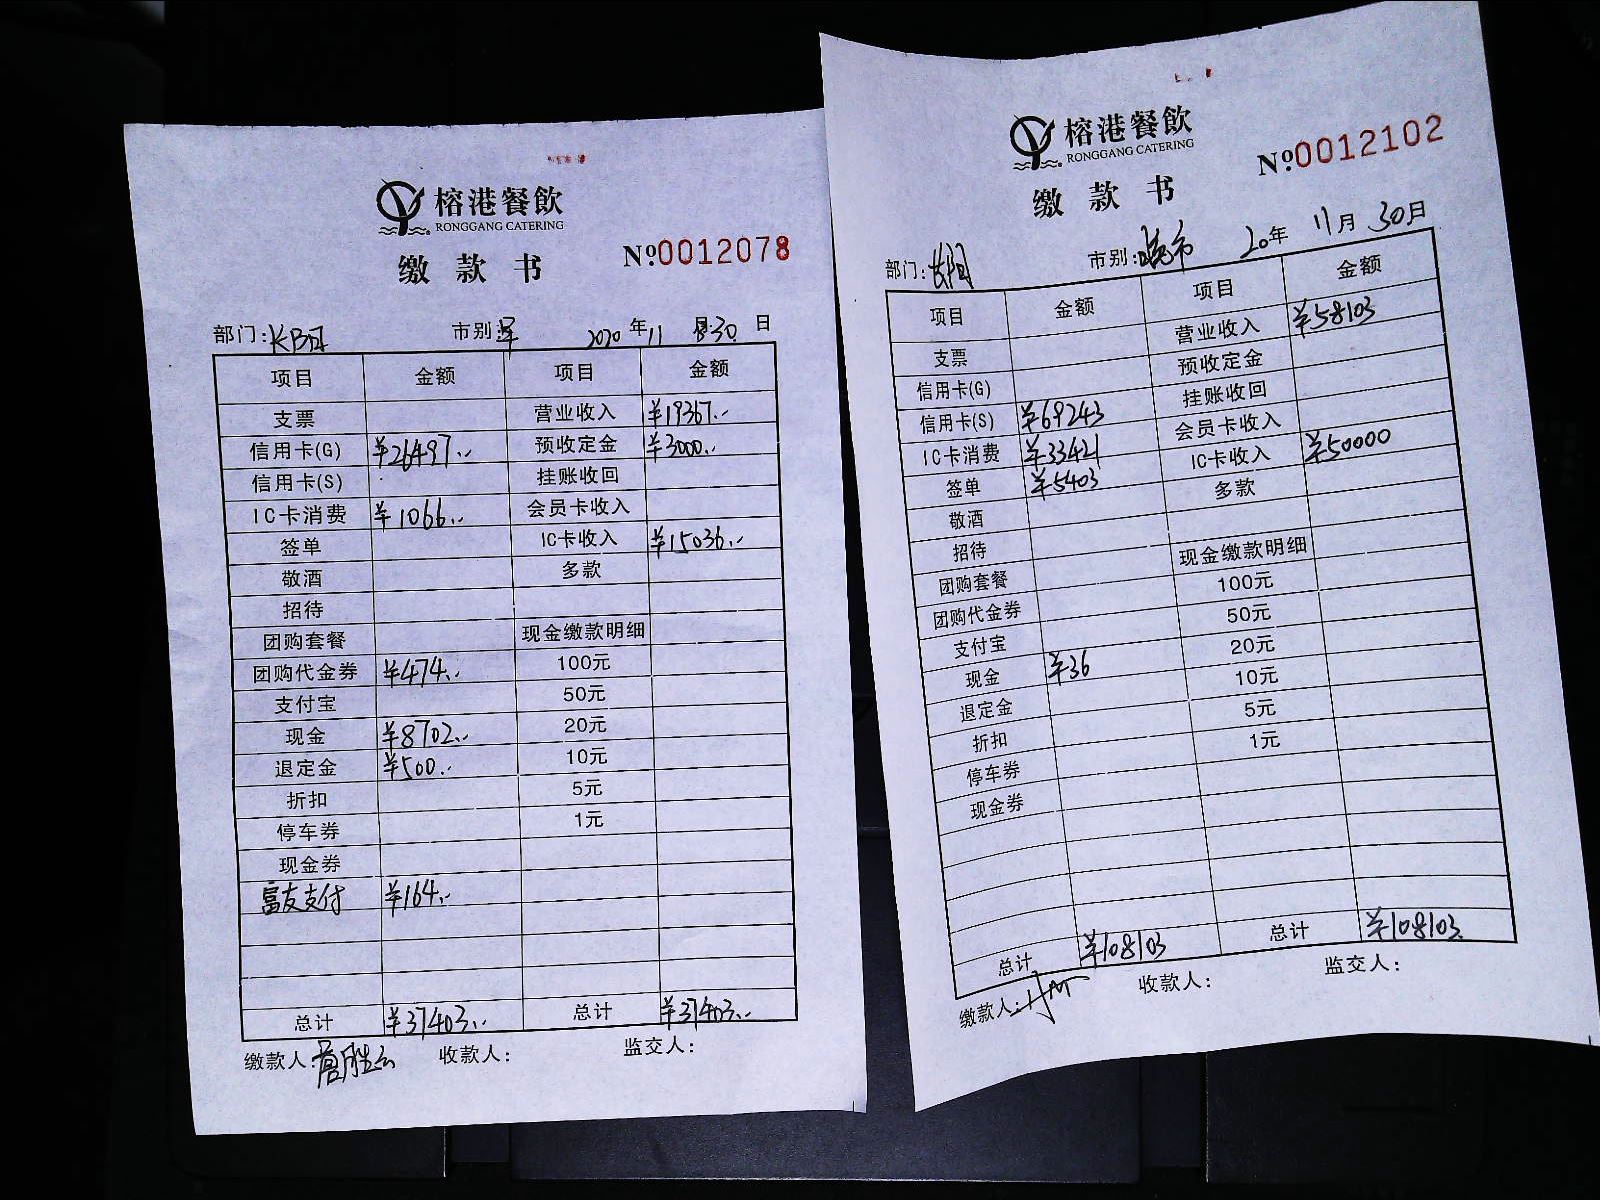 榕港餐飲
RONGGANG CATERING
缴款书
№0012078
部门:长阳 市别:早 2020年11月30日
项目 金额 项目 金额
支票 营业收入 ¥19367.-
信用卡(G) ¥26497.- 预收定金 ¥3000.-
信用卡(S) 挂账收回
IC卡消费 ¥1066.- 会员卡收入
签单 IC卡收入 ¥15036.-
敬酒 多款
招待
团购套餐 现金缴款明细
团购代金券 ¥474.- 100元
支付宝 50元
现金 ¥8702.- 20元
退定金 ¥500.- 10元
折扣 5元
停车券 1元
现金券
富友支付 ¥164.-
总计 ¥37403.- 总计 ¥37403.-
缴款人: 收款人: 监交人:
榕港餐飲
RONGGANG CATERING
缴款书
№0012102
部门:长阳 市别:晚市 20年11月30日
项目 金额 项目 金额
支票 营业收入 ¥58103
信用卡(G) 预收定金
信用卡(S) ¥69243 挂账收回
IC卡消费 ¥33421 会员卡收入
签单 ¥5403 IC卡收入 ¥50000
敬酒 多款
招待
团购套餐 现金缴款明细
团购代金券 100元
支付宝 50元
现金 ¥36 20元
退定金 10元
折扣 5元
停车券 1元
现金券
总计 ¥108103 总计 ¥108103
缴款人: 收款人: 监交人: